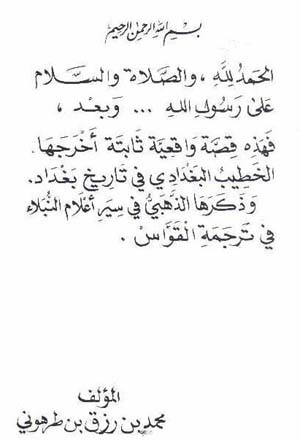 بسم الله الرحمن الرحيم
الحمد لله ، والصلاة والسلام
على رسول الله ... وبعد ،
فهذه قصة واقعية ثابتة أخرجها
الخطيب البغدادي في تاريخ بغداد .
وذكرها الذهبي في سير أعلام النبلاء
في ترجمة القواس .
المؤلف
محمد بن رزق بن طرهوني